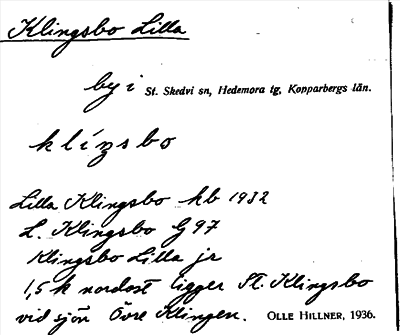 Klingsbo Lilla
by i St. Skedvi sn, Hedemora tg, Kopparbergs län.
klíŋsbo
Lilla Klingsbo hb 1932
L. Klingsbo G 97
Klingsbo Lilla jr
1,5 k nordost ligger St. Klingsbo
vid sjön Övre Klingen. OLLE HILLNER, 1936.